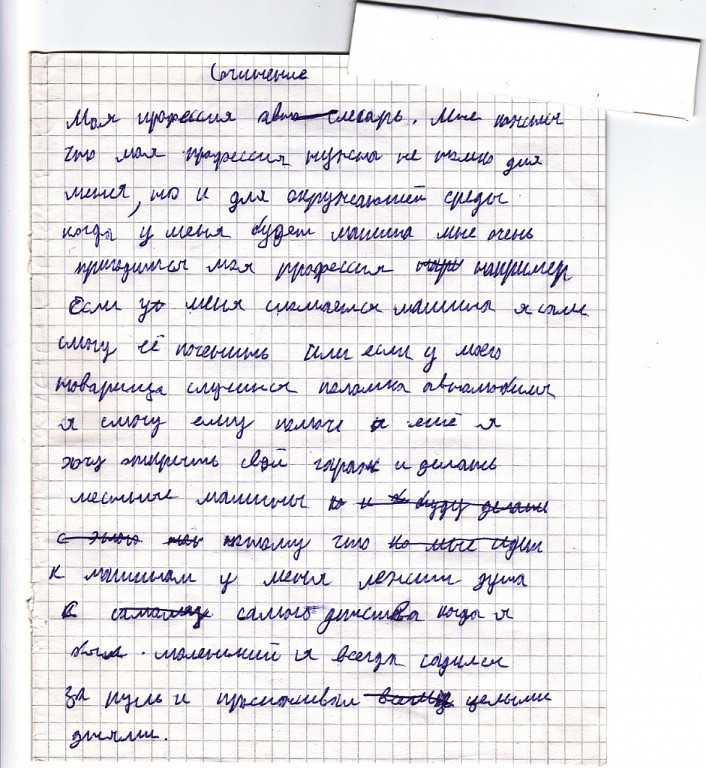 Сочинение
Моя профессия авто слесарь. Мне кажется
что моя профессия нужна не только для
меня, но и для окружающей среды
когда у меня будет машина мне очень
пригодится моя профессия например
Если у меня сламается машина я сам
смогу её починить или если у моего
товарища случится поломка автомобиля
я смогу ему помочь и ещё я
хочу открыть свой гараж и делать
местные машины
потому что
к машинам у меня лежит душа
С самого детства когда я
был маленький я всегда садился
за руль и просиживал целыми
днями.